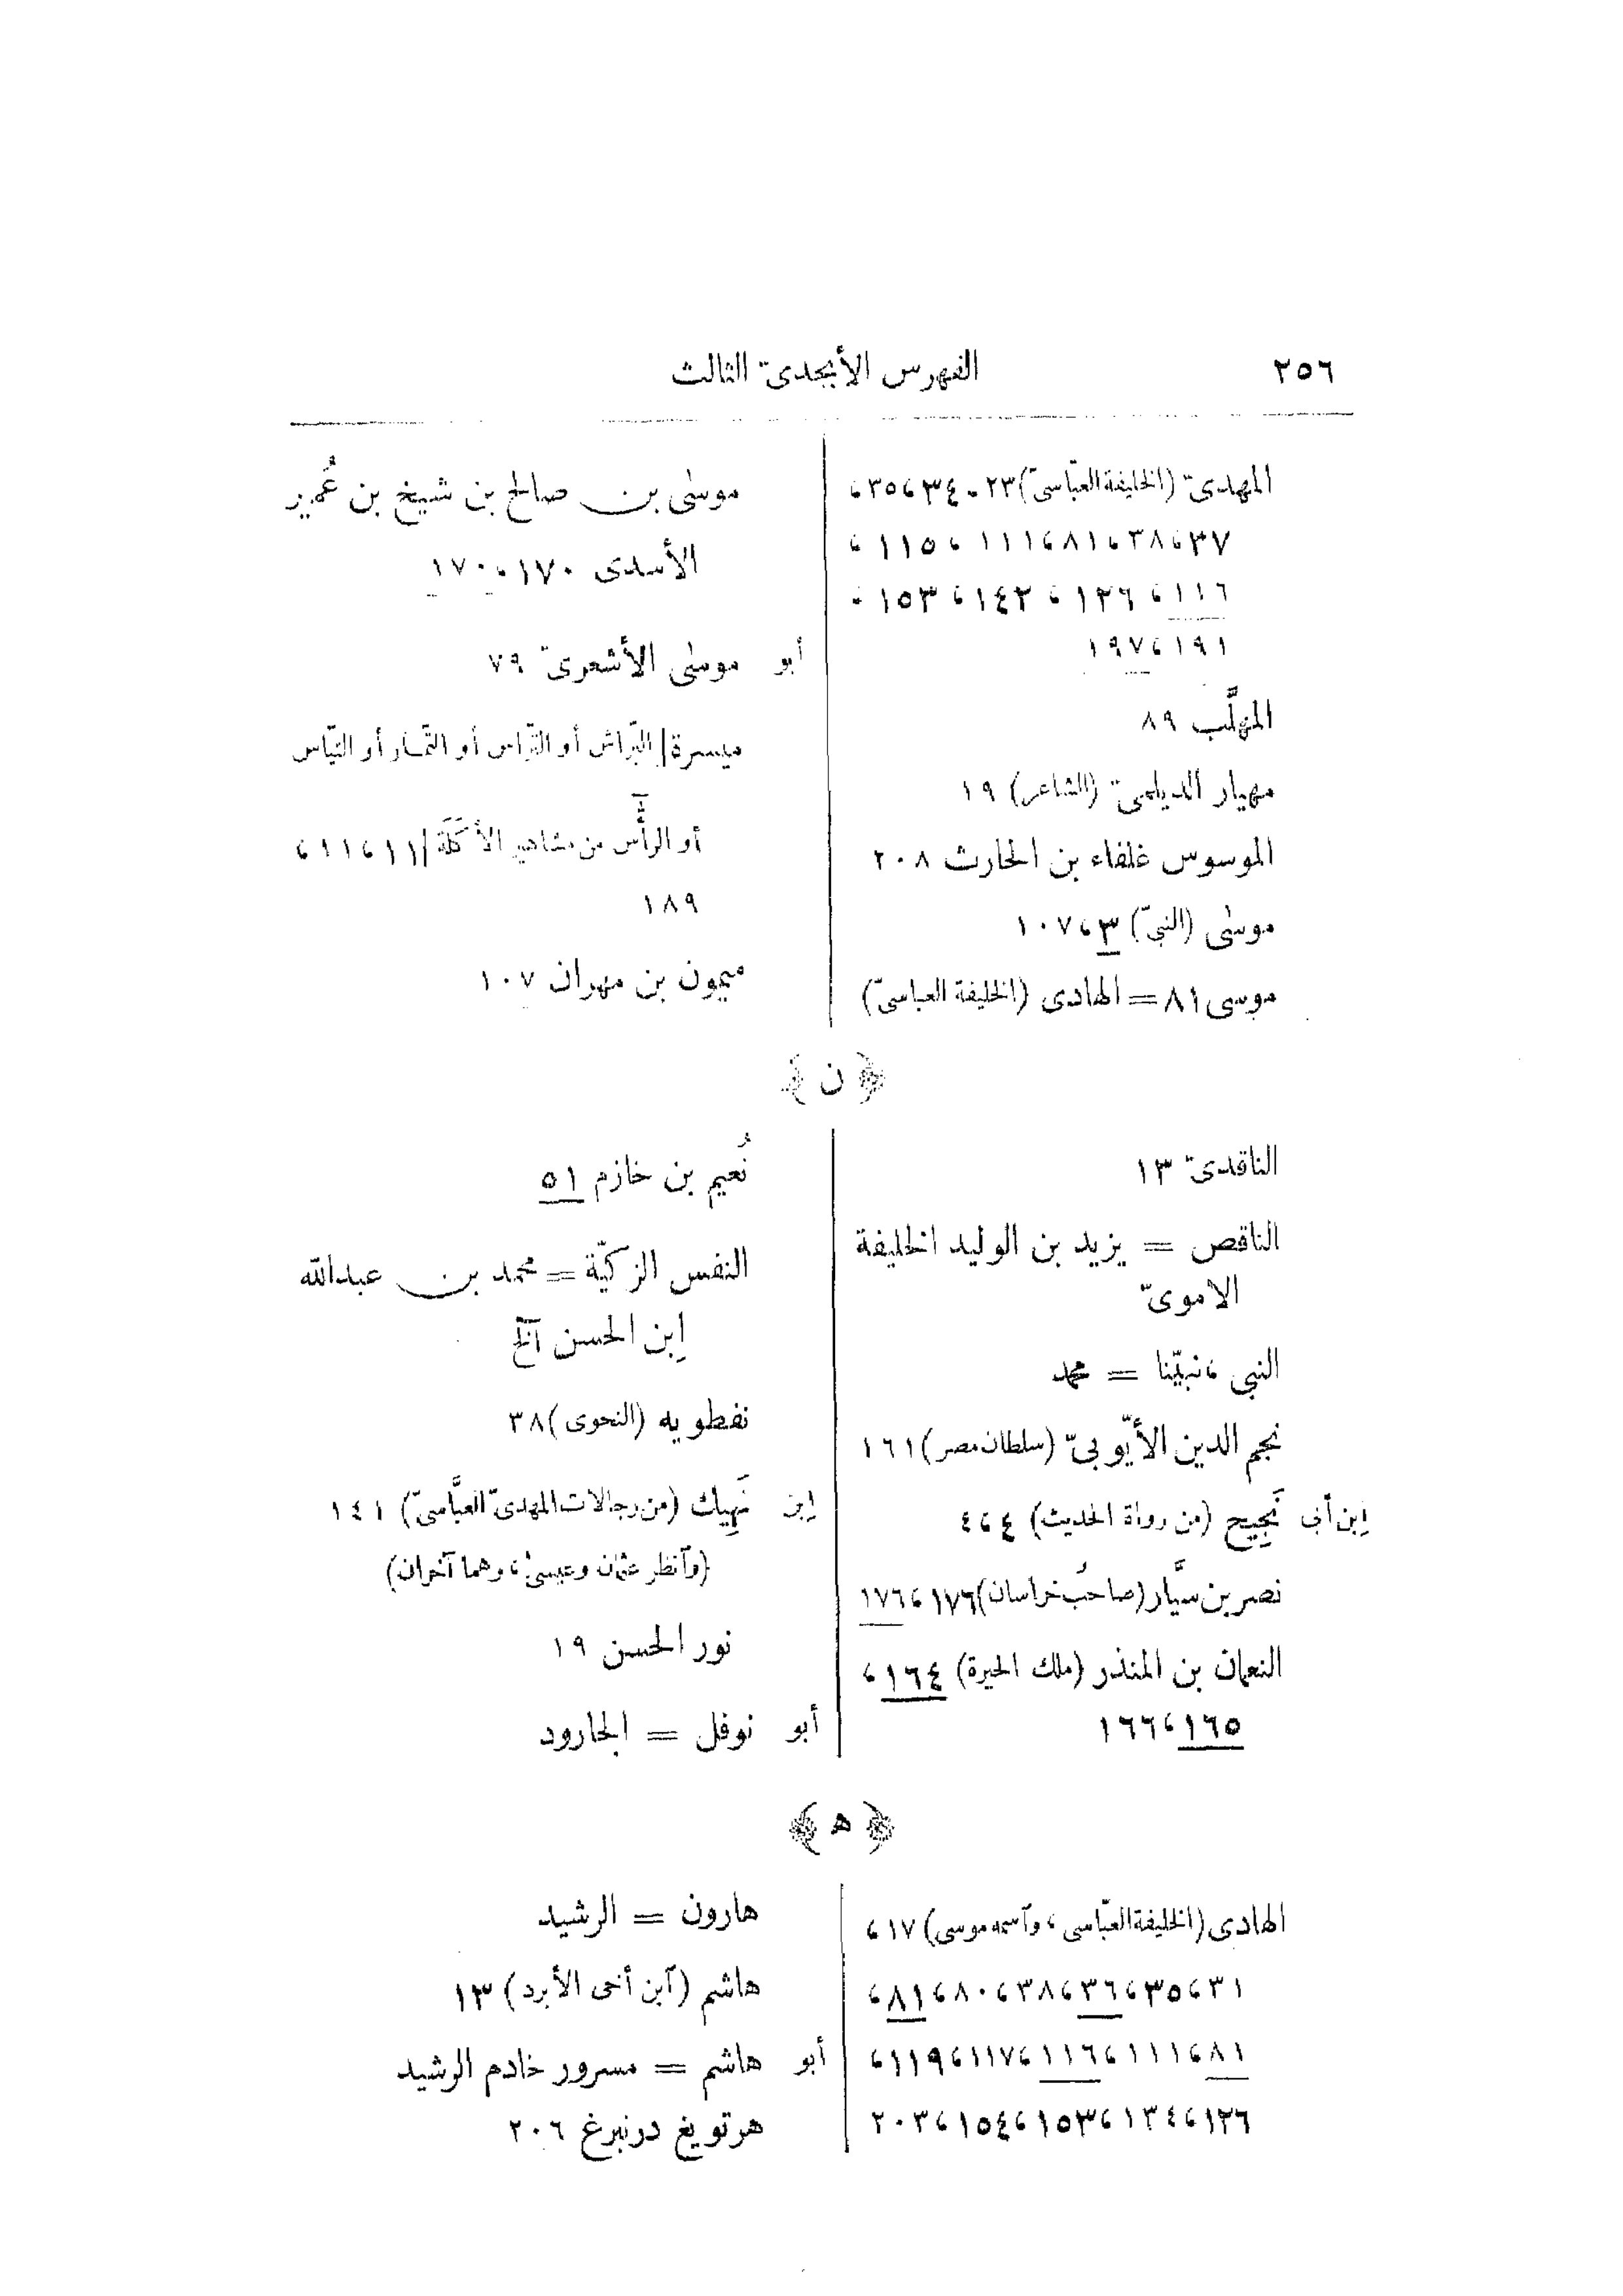 ٢٥٦
الفهرس الأبجدىّ الثالث
المهدىّ (الخليفة العبّاسىّ) ٢٣، ٣٤، ٣٥،
٣٧، ٣٨، ٨١، ١١١، ١١٥،
١١٦، ١٢٦، ١٤٢، ١٥٣،
١٩١، ١٩٧
المهلَّب ٨٩
مهيار الديلمىّ (الشاعر) ١٩
الموسوس غلفاء بن الحارث ٢٠٨
موسٰى (النبىّ) ٣، ١٠٧
موسى ٨١ = الهادى (الخليفة العباسىّ)
موسٰى بن صالح بن شيخ بن عُمير
الأسدى ١٧٠، ١٧٠
أبو موسٰى الأشعرىّ ٧٩
ميسرة [البرّاش أو الترّاس أو التمّار أو التيّاس
أو الرأّس من مشاهير الأكَلَة] ١١، ١١،
١٨٩
ميمون بن مهران ١٠٧
﴿ ن ﴾
الناقدىّ ١٣
الناقص = يزيد بن الوليد الخليفة
الاموىّ
النبى، نبيّنا = محمد
نجم الدين الأيّوبىّ (سلطان مصر) ١٦١
اِبن أبى نَجِيح (من رواة الحديث) ٤، ٤
نصر بن سيَّار (صاحب خراسان) ١٧٦، ١٧٦
النعمان بن المنذر (ملك الحيرة) ١٦٤،
١٦٥، ١٦٦
نُعيم بن خازم ٥١
النفس الزكيّة = محمد بن عبدالله
اِبن الحسن آلخ
نفطويه (النحوى) ٣٨
اِبن نَهِيك (من رجالات المهدىّ العبَّاسىّ) ١٤١
(وآنظر عثمان وعيسىٰ، وهما آخران)
نور الحسن ١٩
أبو نوفل = الجارود
﴿ ه ﴾
الهادى (الخليفة العبّاسى، وآسمه موسى) ١٧،
٣١، ٣٥، ٣٦، ٣٨، ٨٠، ٨١،
٨١، ١١١، ١١٦، ١١٧، ١١٩،
١٢٦، ١٣٤، ١٥٣، ١٥٤، ٢٠٣
هارون = الرشيد
هاشم (آبن أخى الأبرد) ١٣
أبو هاشم = مسرور خادم الرشيد
هرتويغ درنبرغ ٢٠٦